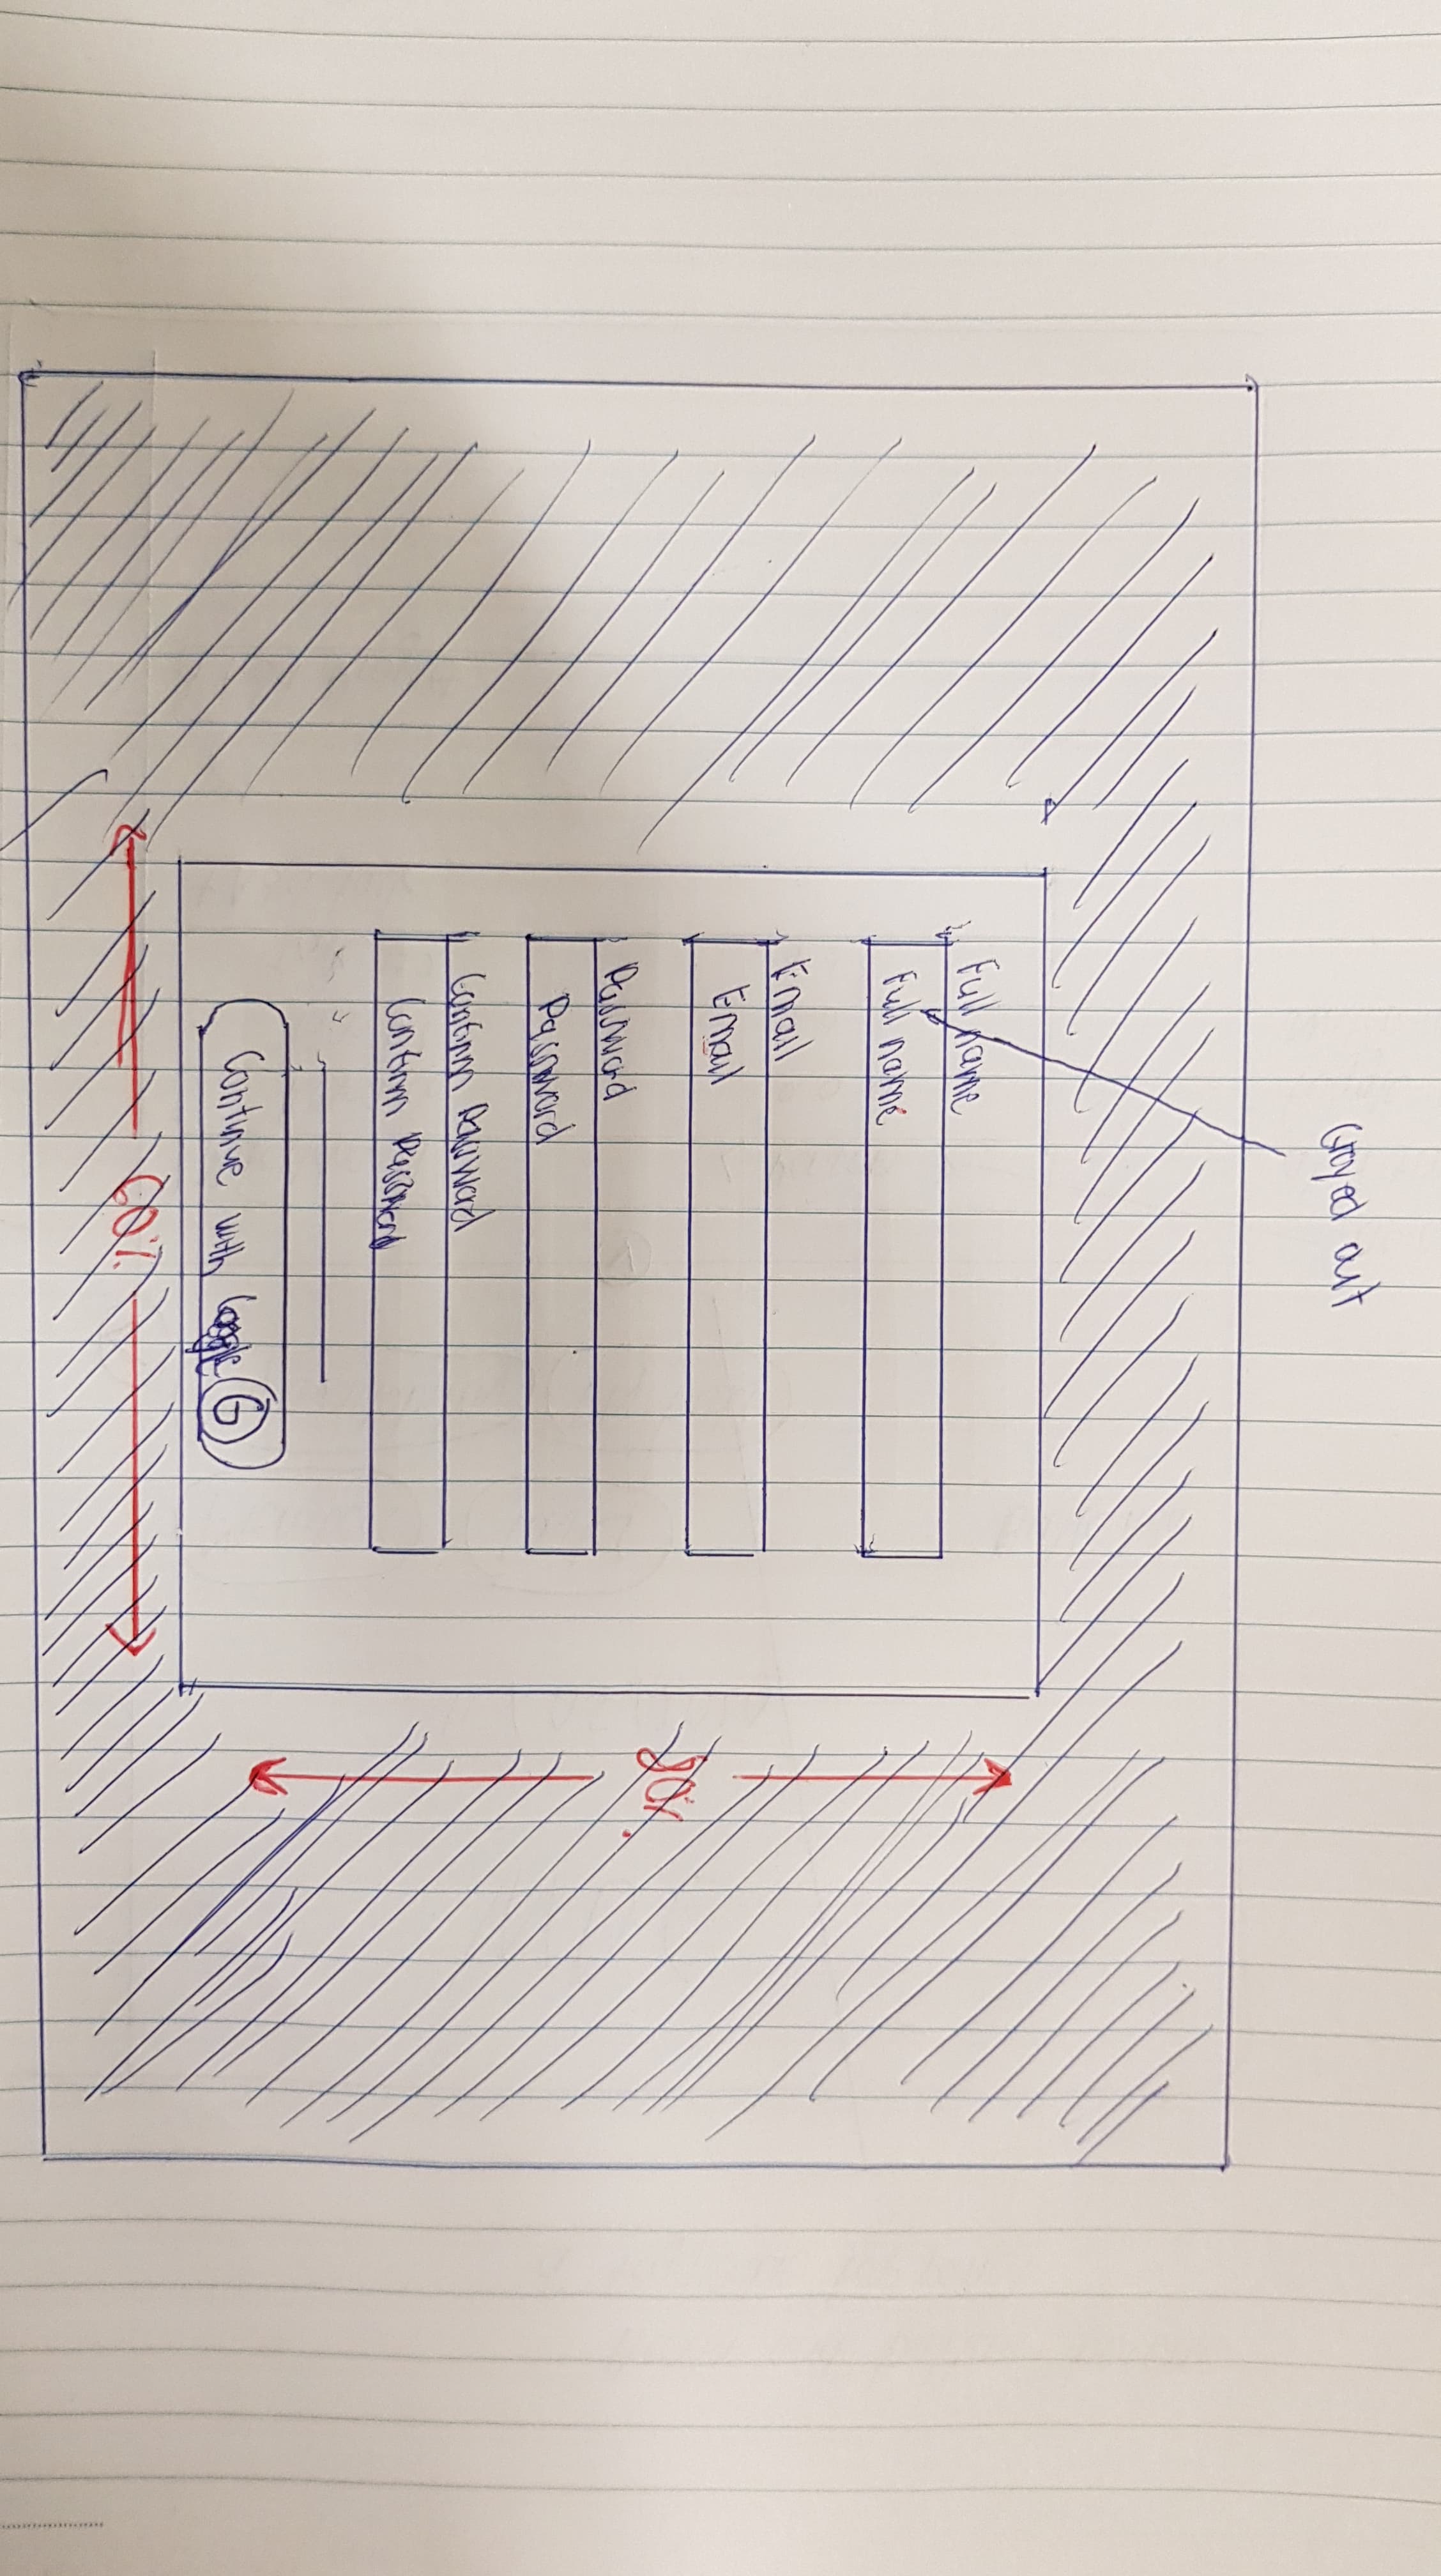 Grayed out
Full name
Full name
Email
Email
Password
Password
Confirm Password
Confirm Password
Continue with Google G
80%
60%